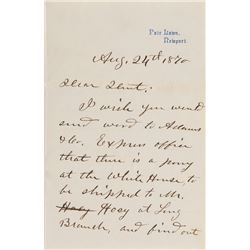 Fair Lawn,
Newport.
Aug. 24th 1870
Dear Dent:
I wish you would
send word to Adams
& Co. Express office
that there is a pony
at the White House to
be shipped to Mr.
Hoey Hoey at Long
Branch, and find out